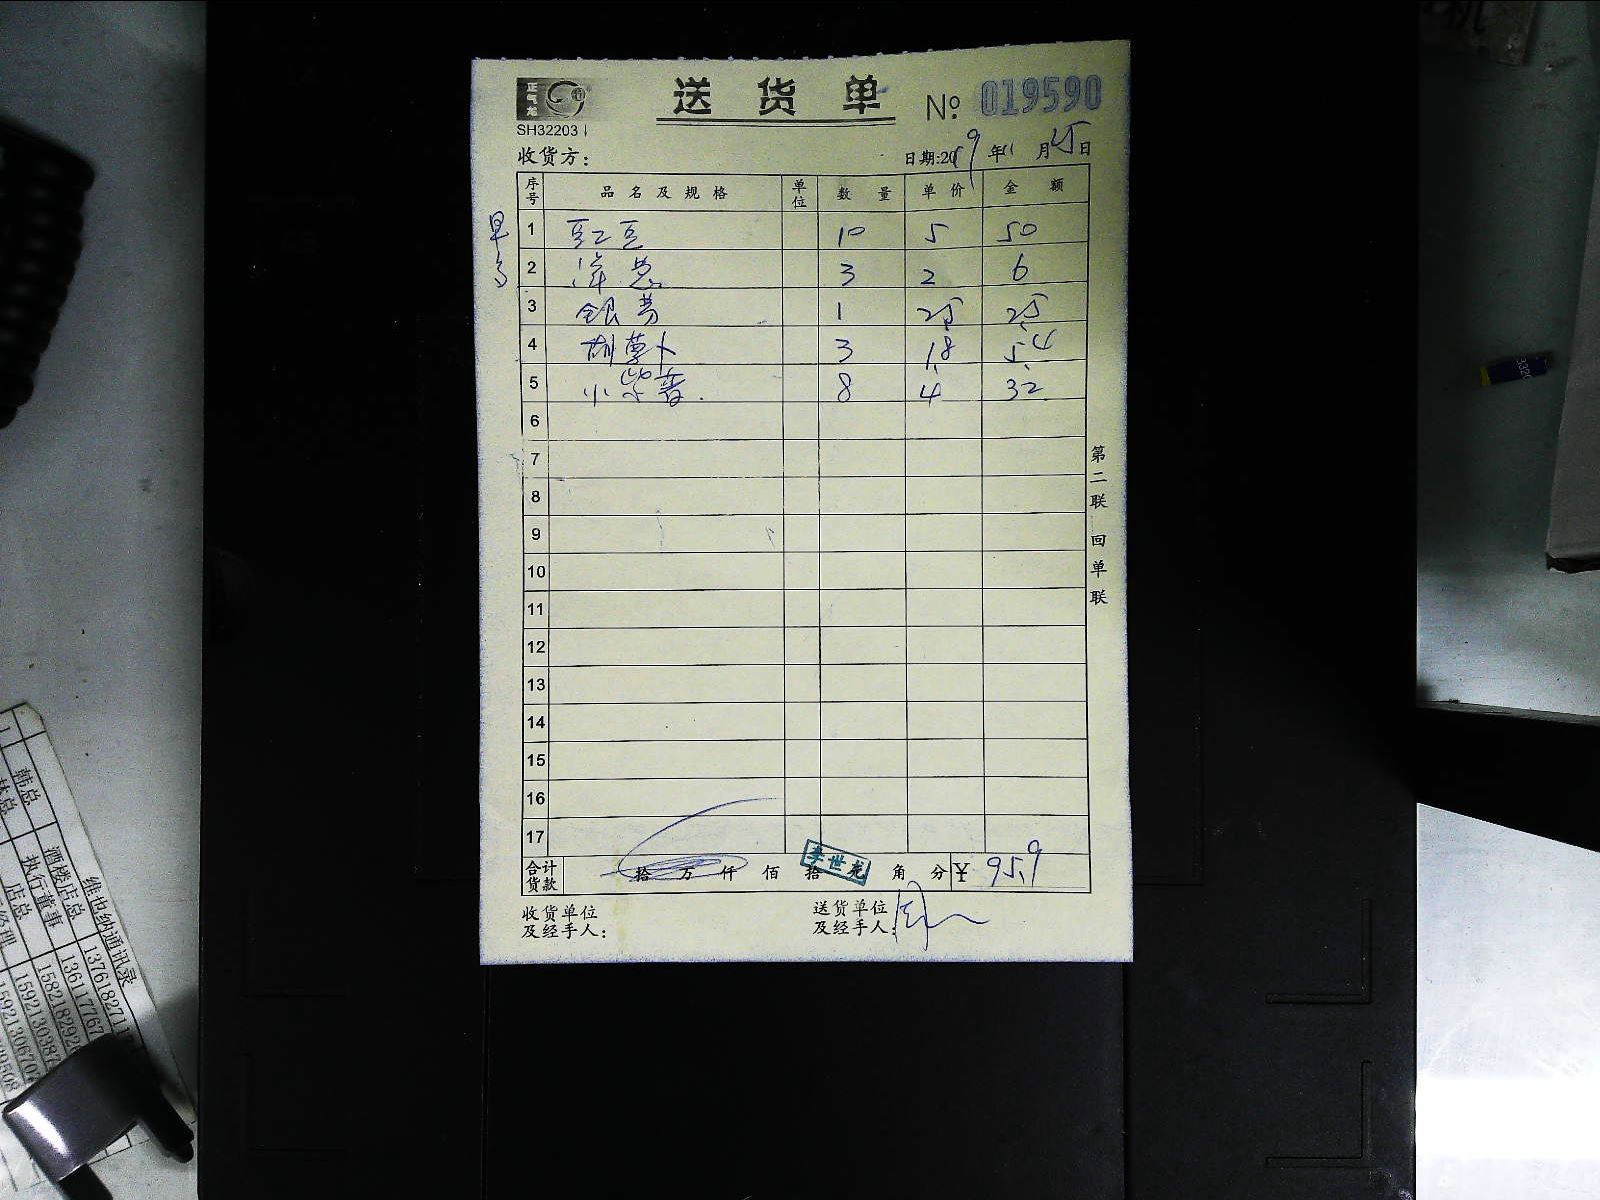 正气龙
送货单 № 019590
SH32203
收货方： 日期:2019年11月25日
序号 品名及规格 单位 数量 单价 金额
早
1 豇豆 10 5 50
2 洋葱 3 2 6
3 1 25 25
4 胡萝卜 3 1.8 5.4
5 小紫薯 8 4 32
6
7
8
9
10
11
12
13
14
15
16
17
第二联 回单联
合计货款 拾 万 仟 佰 拾 角 分 ¥ 95.9
李世龙
收货单位及经手人：
送货单位及经手人：
维也纳通讯录
韩总 酒楼店总 1376182711
林总 执行董事 136117767
店总 158218292
经理 1592130387
159213067